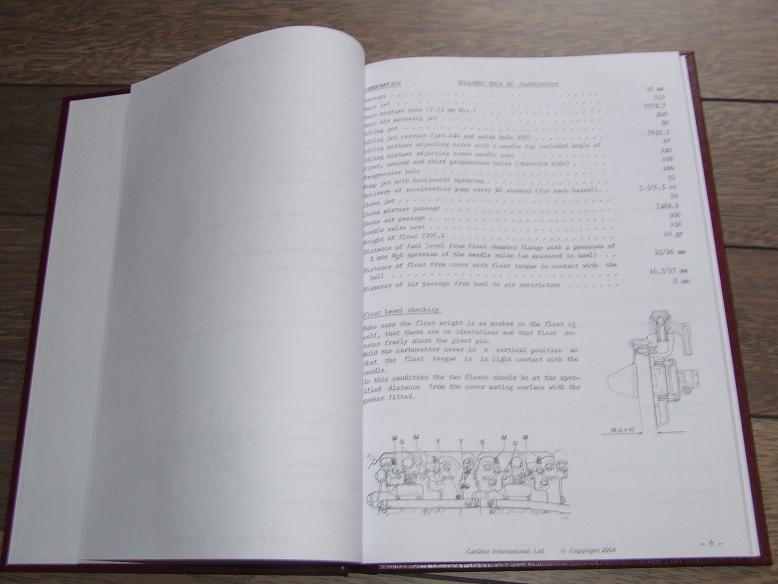 CARBURETION DELLORTO DHLA 40 Carburettor
Venturi 32 mm
Main jet 125
Main mixture tube 7772.7
Main air metering jet 200
Idling jet 50
Idling jet carrier 7850.2
Idling mixture adjusting screw with a needle tip included angle of
Idling mixture adjusting screw needle seat
First, second and third progression holes (throttle side)
Progression hole
Pump jet with horizontal spraying
Delivery of acceleration pump every 20 strokes (for each barrel)
Choke jet
Choke mixture passage 7482.1
Choke air passage 300
Needle valve seat 150
Weight of float 7298.2 10 gr
Distance of fuel level from float chamber flange with a pressure of
2 mtr H2O upstream of the needle valve (as measured in bowl) 25/26 mm
Distance of float from cover with float tongue in contact with the
ball 16.5/17 mm
Diameter of air passage from bowl to air restrictor 6 mm
Float level checking
Make sure the float weight is as marked on the float it
self, that there are no identations and that float ro-
tates freely about the pivot pin.
Hold the carburettor cover in a vertical position so
that the float tongue is in light contact with the
needle.
In this condition the two floats should be at the spec-
ified distance from the cover mating surface with the
gasket fitted.
16.5 ÷ 17
M D M F T S M D M
CarDisc International Ltd. © Copyright 2004
- 6 -